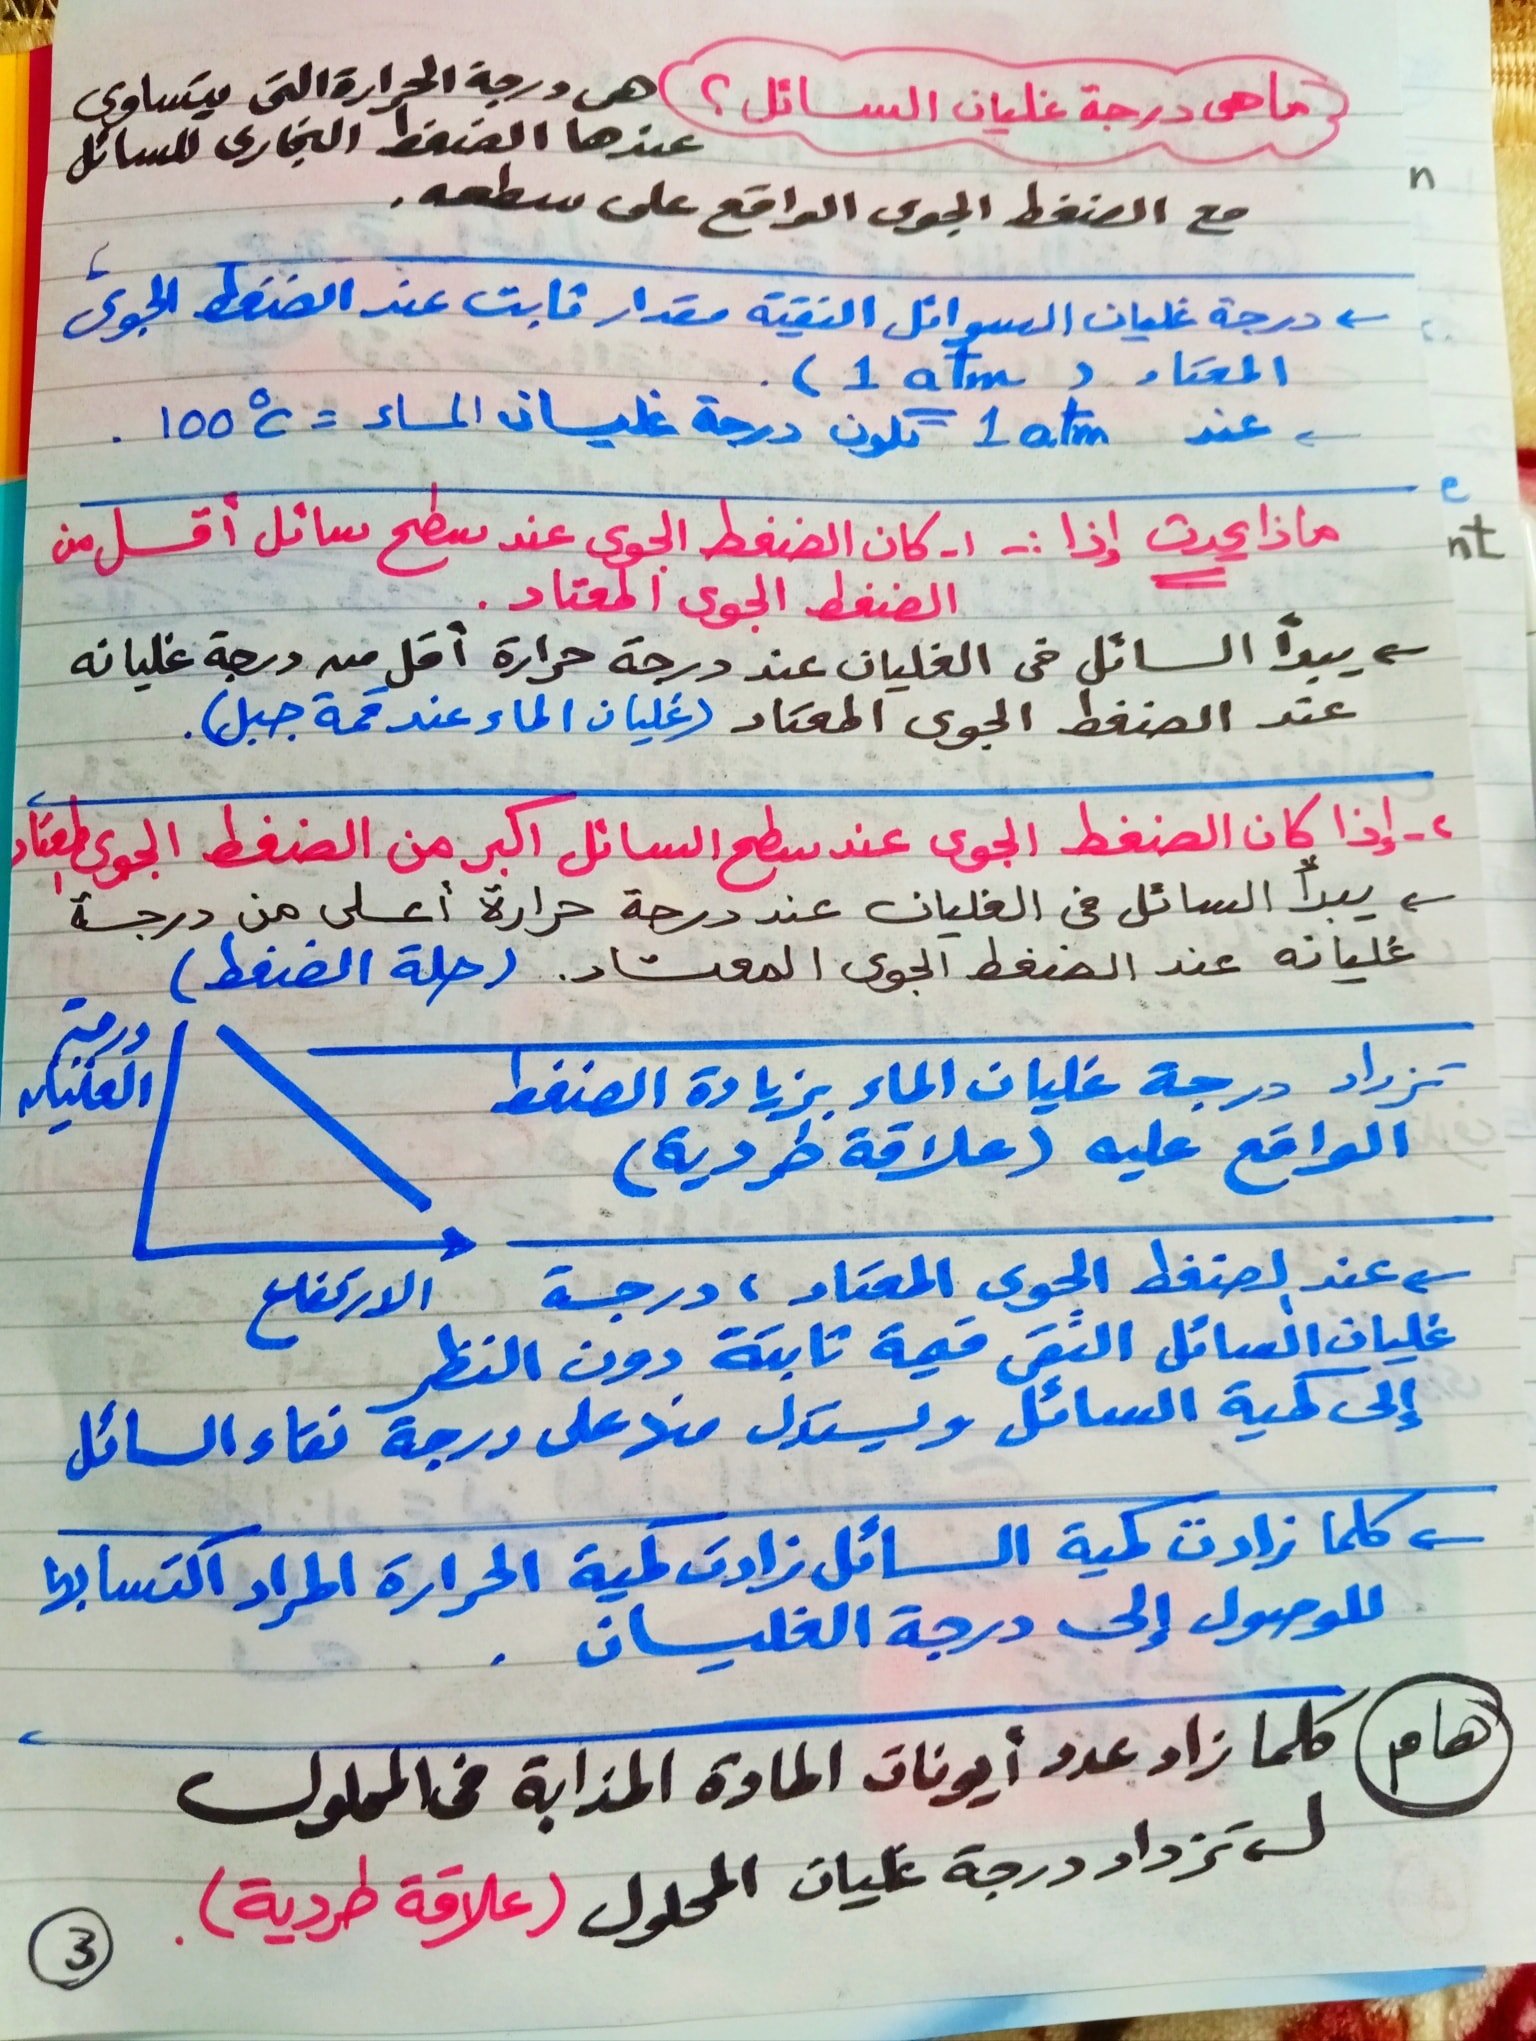 ما هى درجة غليان السائل ؟ هى درجة الحرارة التى يتساوى
عندها الضغط البخارى للسائل
مع الضغط الجوى الواقع على سطحه .
← درجة غليان السوائل النقية مقدار ثابت عند الضغط الجوى
المعتاد ( 1 atm ) .
← عند 1 atm تكون درجة غليان الماء = 100°C .
ماذا يحدث إذا :- ١- كان الضغط الجوى عند سطح سائل أقل من
الضغط الجوى المعتاد .
← يبدأ السائل فى الغليان عند درجة حرارة أقل من درجة غليانه
عند الضغط الجوى المعتاد (غليان الماء عند قمة جبل) .
٢- إذا كان الضغط الجوى عند سطح السائل اكبر من الضغط الجوى المعتاد
← يبدأ السائل فى الغليان عند درجة حرارة أعلى من درجة
غليانه عند الضغط الجوى المعتاد . (حلة الضغط)
درجة
الغليان
تزداد درجة غليان الماء بزيادة الضغط
الواقع عليه (علاقة طردية)
الارتفاع
← عند الضغط الجوى المعتاد ، درجة
غليان السائل النقى قيمة ثابتة دون النظر
إلى كمية السائل ويستدل منها على درجة نقاء السائل
← كلما زادت كمية السائل زادت كمية الحرارة المراد اكتسابها
للوصول إلى درجة الغليان .
هام كلما زاد عدد أيونات المادة المذابة فى المحلول
تزداد درجة غليان المحلول (علاقة طردية) .
3
n
e
nt